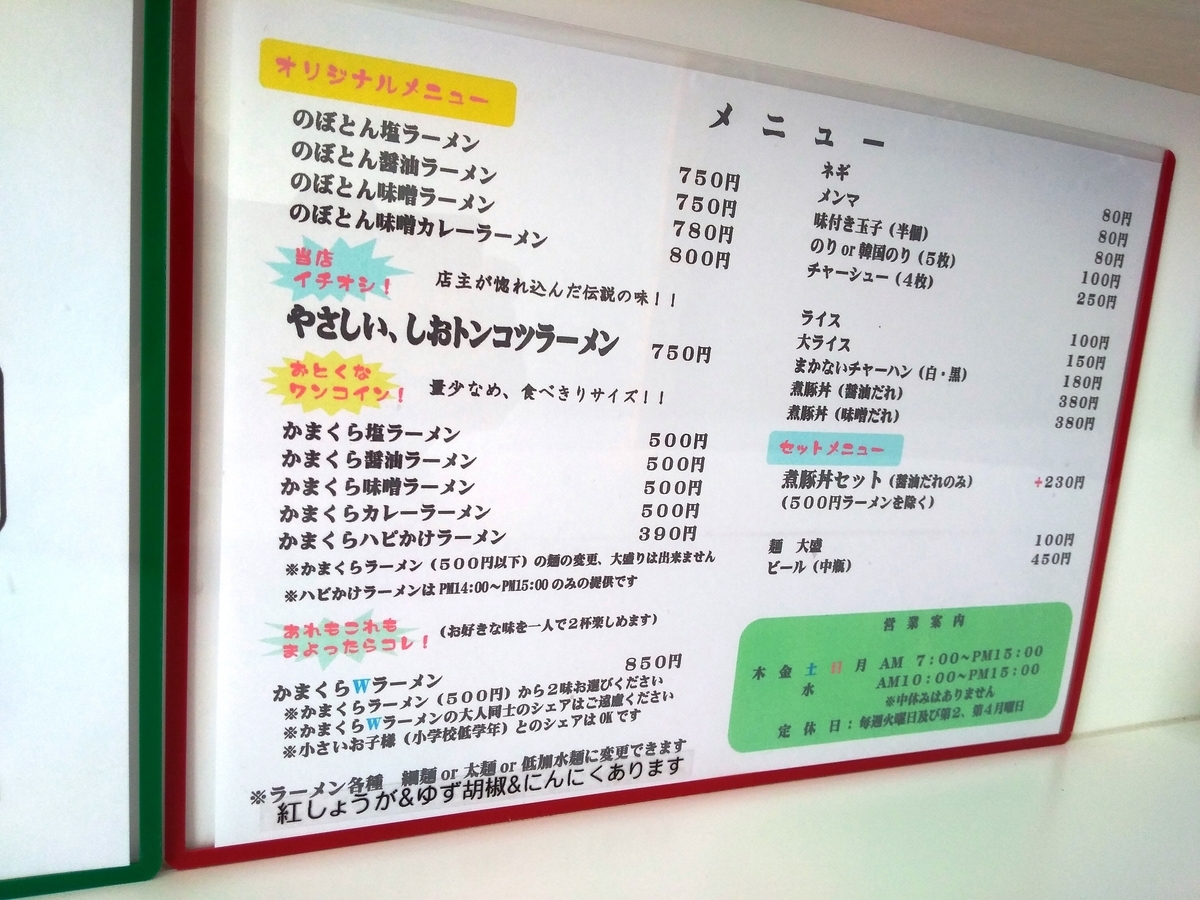 メニュー
オリジナルメニュー
のぼとん塩ラーメン 750円
のぼとん醤油ラーメン 750円
のぼとん味噌ラーメン 780円
のぼとん味噌カレーラーメン 800円
当店
イチオシ!
店主が惚れ込んだ伝説の味!!
やさしい、しおトンコツラーメン 750円
おとくな
ワンコイン!
量少なめ、食べきりサイズ!!
かまくら塩ラーメン 500円
かまくら醤油ラーメン 500円
かまくら味噌ラーメン 500円
かまくらカレーラーメン 500円
かまくらハピかけラーメン 390円
※かまくらラーメン(500円以下)の麺の変更、大盛りは出来ません
※ハピかけラーメンはPM14:00~PM15:00のみの提供です
あれもこれも
まよったらコレ!
(お好きな味を一人で2杯楽しめます)
かまくらWラーメン 850円
※かまくらラーメン(500円)から2味お選びください
※かまくらWラーメンの大人同士のシェアはご遠慮ください
※小さいお子様(小学校低学年)とのシェアはOKです
※ラーメン各種 細麺or太麺or低加水麺に変更できます
紅しょうが&ゆず胡椒&にんにくあります
ネギ 80円
メンマ 80円
味付き玉子(半個) 80円
のりor韓国のり(5枚) 100円
チャーシュー(4枚) 250円
ライス 100円
大ライス 150円
まかないチャーハン(白・黒) 180円
煮豚丼(醤油だれ) 380円
煮豚丼(味噌だれ) 380円
セットメニュー
煮豚丼セット(醤油だれのみ) +230円
(500円ラーメンを除く)
麺 大盛 100円
ビール(中瓶) 450円
営業案内
木金土日月 AM 7:00~PM15:00
水 AM10:00~PM15:00
※中休みはありません
定休日:毎週火曜日及び第2、第4月曜日